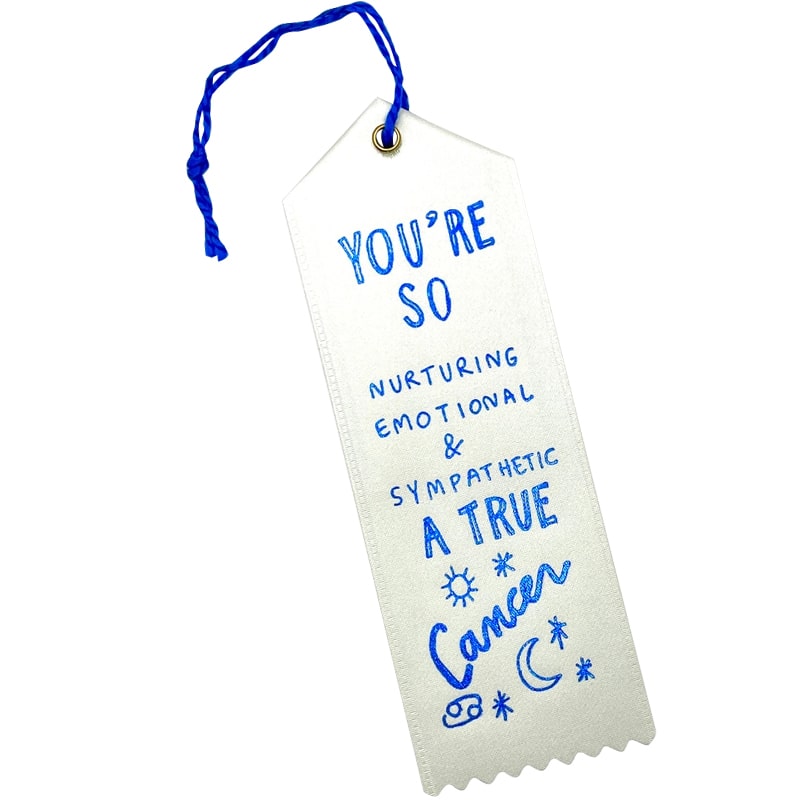 YOU'RE
SO
NURTURING
EMOTIONAL
&
SYMPATHETIC
A TRUE
Cancer